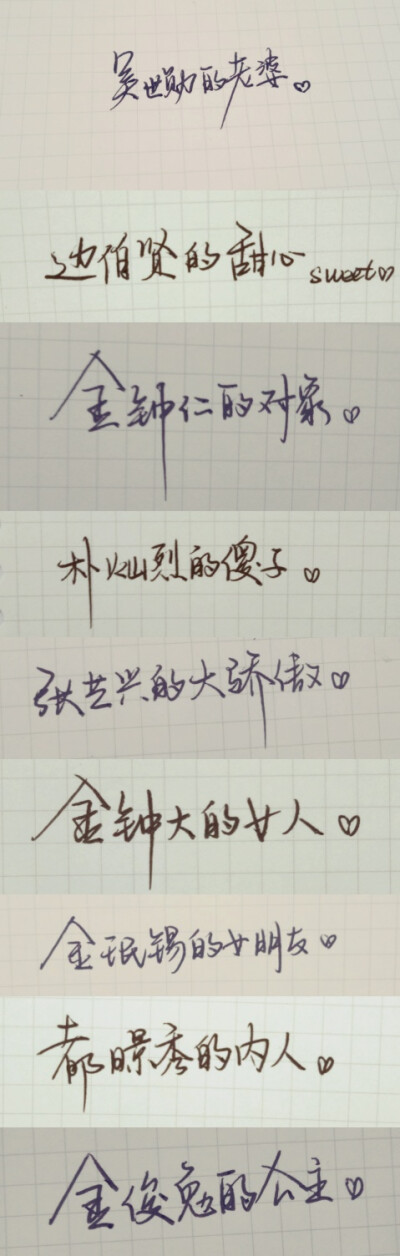 吴世勋的老婆♡
边伯贤的甜心sweet♡
金钟仁的对象♡
朴灿烈的傻子♡
张艺兴的大骄傲♡
金钟大的女人♡
金珉锡的女朋友♡
都暻秀的内人♡
金俊勉的公主♡